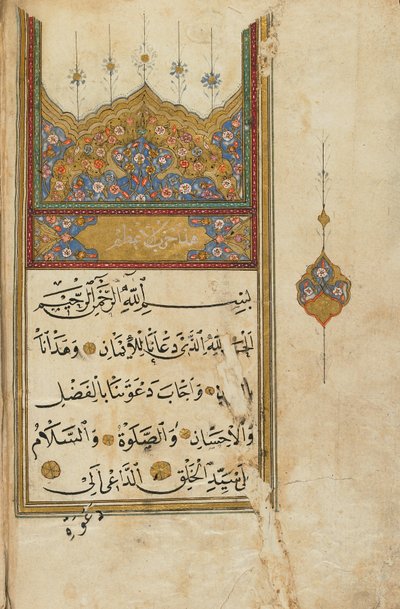 هذا حزب
بِسْمِ اللَّهِ الرَّحْمٰنِ الرَّحِيمِ
لِلَّهِ الَّذِي دَعَانَا لِلْاِيمَانِ وَهَدَانَا
وَاَجَابَ دَعْوَتَنَا بِالْفَضْلِ
وَالْاِحْسَانِ وَالصَّلٰوةُ وَالسَّلَامُ
سَيِّدِ الْخَلْقِ الدَّاعِي اِلَى
دَعْوَةِ